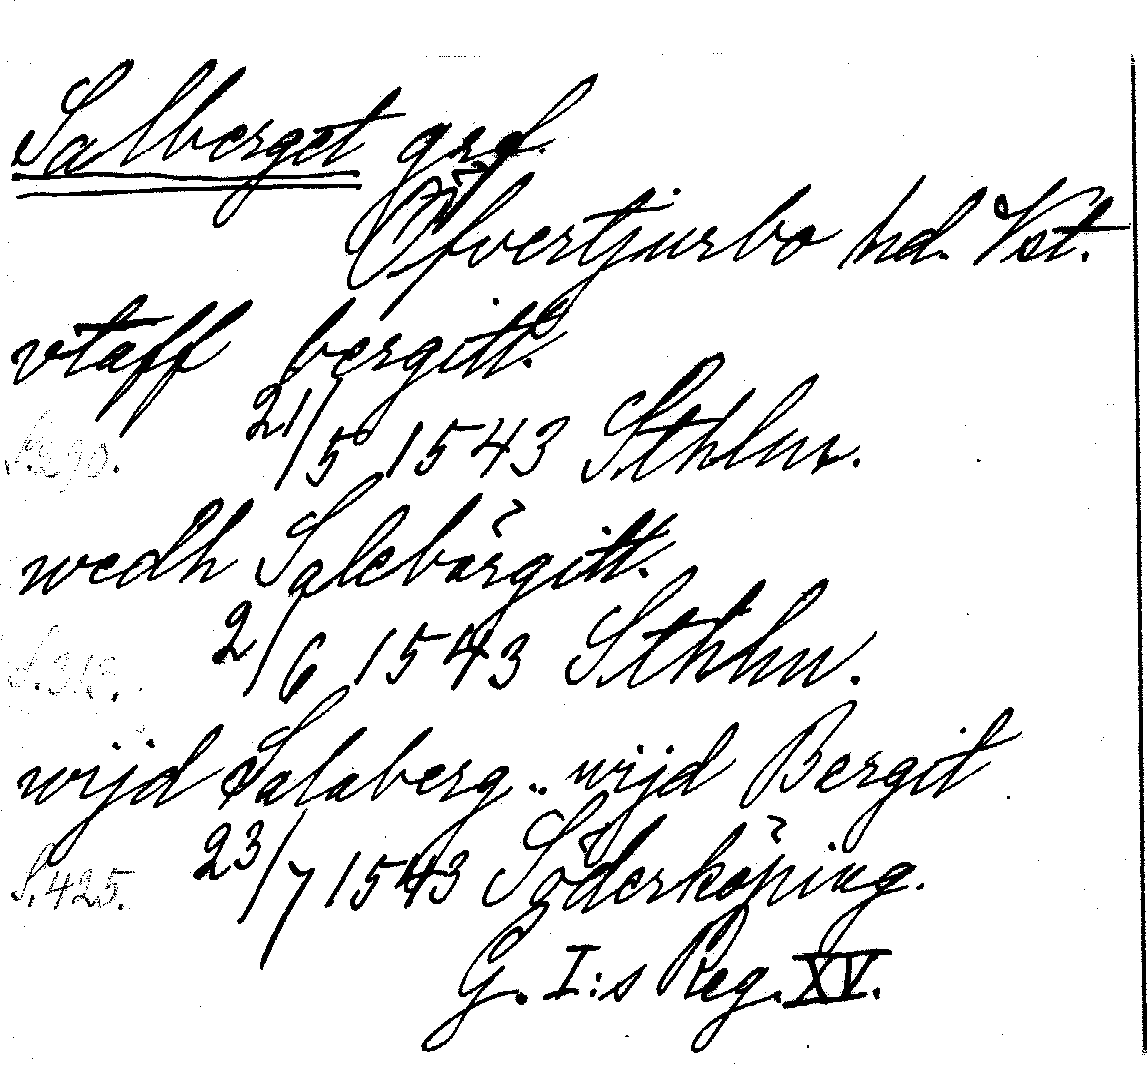 Salberget grd.
Öfvertjurbo hd. Vst.
vtaff bergitt.
S. 290. 21/5 1543 Sthlm.
wedh Salebärgitt.
S. 313. 2/6 1543 Sthlm.
wijd Salaberg .. wijd Bergit
S. 425. 23/7 1543 Söderköping.
G. I:s Reg. XV.